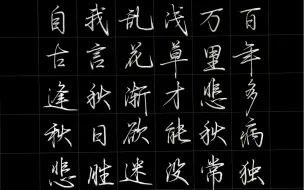 自古逢秋悲
我言秋日胜
乱花渐欲迷
浅草才能没
万里悲秋常
百年多病独